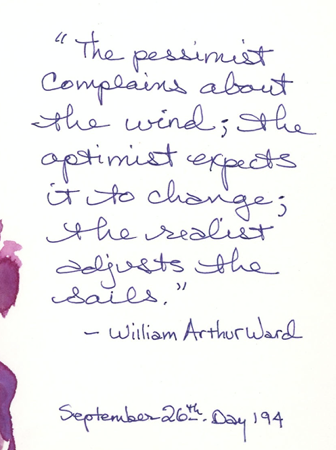 “The pessimist
complains about
the wind; the
optimist expects
it to change;
the realist
adjusts the
sails.”
– William Arthur Ward
September 26th. Day 194